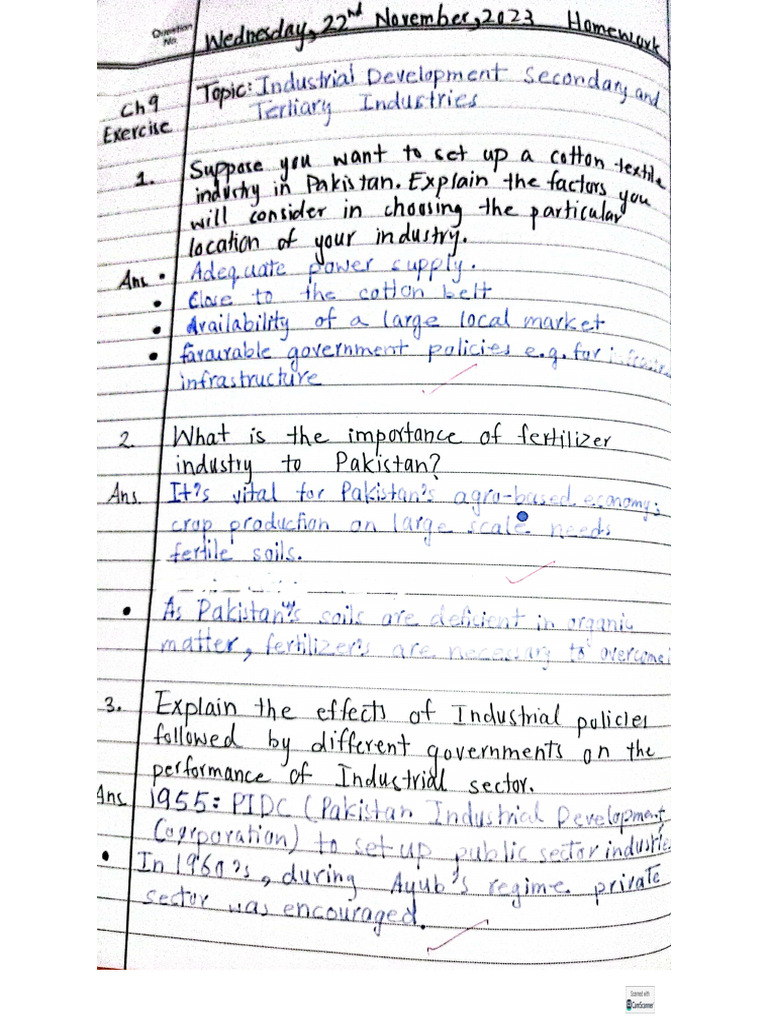 Question No.
Wednesday, 22nd November, 2023 Homework
Ch 9 Exercise
Topic: Industrial Development Secondary and
Tertiary Industries
1. Suppose you want to set up a cotton textile
industry in Pakistan. Explain the factors you
will consider in choosing the particular
location of your industry.
Ans • Adequate power supply.
• Close to the cotton belt
• Availability of a large local market
• favourable government policies e.g. for
infrastructure
2. What is the importance of fertilizer
industry to Pakistan?
Ans. It's vital for Pakistan's agro-based economy;
crop production on large scale needs
fertile soils.
• As Pakistan's soils are deficient in organic
matter, fertilizer's are necessary to overcome
3. Explain the effects of Industrial policies
followed by different governments on the
performance of Industrial sector.
Ans 1955: PIDC (Pakistan Industrial Development
Coorporation) to set-up public sector industries
• In 1960's, during Ayub's regime private
sector was encouraged.
Scanned with
CamScanner